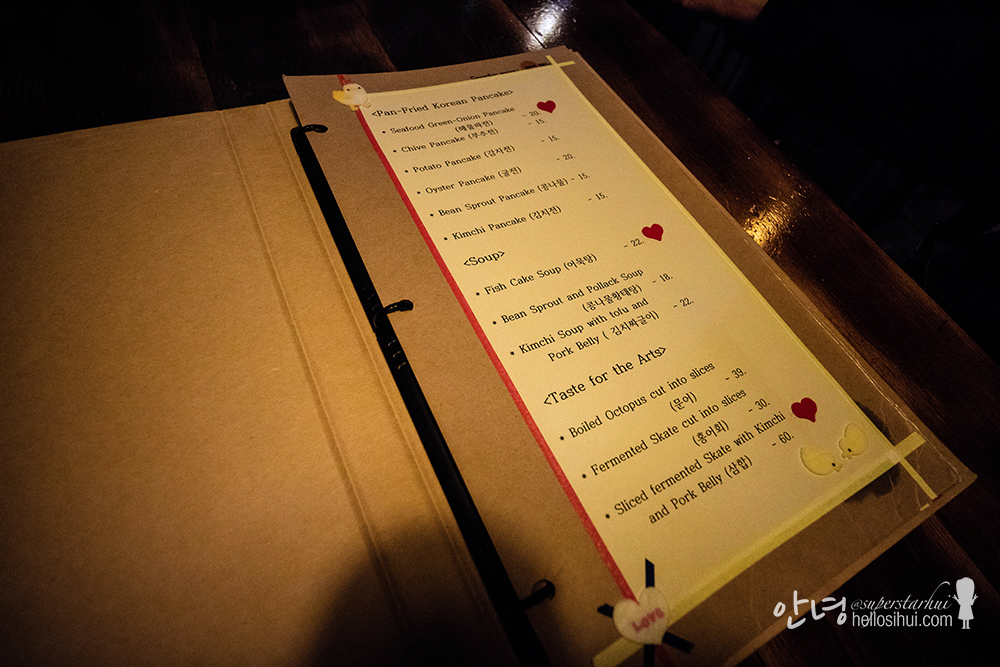 <Pan-Fried Korean Pancake>
• Seafood Green-Onion Pancake - 20.
(해물파전)
• Chive Pancake (부추전) - 15.
• Potato Pancake (감자전) - 15.
• Oyster Pancake (굴전) - 20.
• Bean Sprout Pancake (콩나물) - 15.
• Kimchi Pancake (김치전) - 15.
<Soup>
• Fish Cake Soup (어묵탕) - 22.
• Bean Sprout and Pollack Soup
(콩나물황태탕) - 18.
• Kimchi Soup with tofu and
Pork Belly ( 김치찌글이) - 22.
<Taste for the Arts>
• Boiled Octopus cut into slices
(문어) - 39.
• Fermented Skate cut into slices
(홍어회) - 30.
• Sliced fermented Skate with Kimchi
and Pork Belly (삼합) - 60.
LOVE
안녕 @superstarhui
hellosihui.com